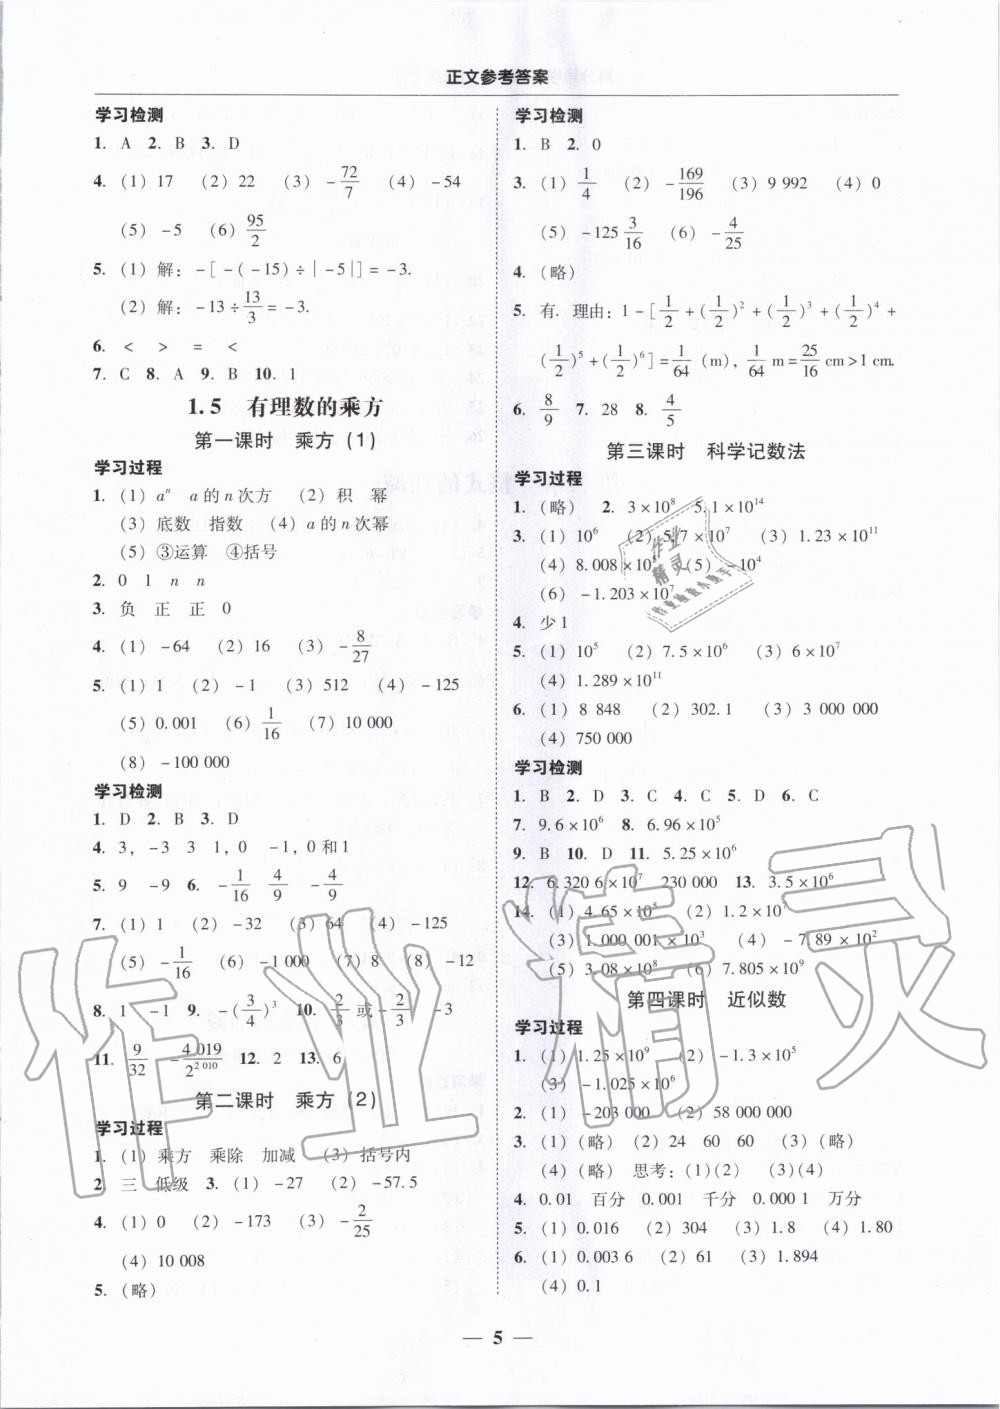 正文参考答案
学习检测
1. A 2. B 3. D
4. (1) 17 (2) 22 (3) -72/7 (4) -54
(5) -5 (6) 95/2
5. (1) 解: -[-(-15)÷|-5|]=-3.
(2) 解: -13÷13/3=-3.
6. < > = <
7. C 8. A 9. B 10. 1
1.5 有理数的乘方
第一课时 乘方(1)
学习过程
1. (1) aⁿ a的n次方 (2) 积 幂
(3) 底数 指数 (4) a的n次幂
(5) ③运算 ④括号
2. 0 1 n n
3. 负 正 正 0
4. (1) -64 (2) 16 (3) -8/27
5. (1) 1 (2) -1 (3) 512 (4) -125
(5) 0.001 (6) 1/16 (7) 10 000
(8) -100 000
学习检测
1. D 2. B 3. D
4. 3, -3 3 1, 0 -1, 0和1
5. 9 -9 6. -1/16 4/9 -4/9
7. (1) 1 (2) -32 (3) 64 (4) -125
(5) -1/16 (6) -1 000 (7) 8 (8) -12
8. 1 -1 9. -(3/4)³ 10. 2/3或-2/3 -3
11. 9/32 -4 019/2^2 010 12. 2 13. 6
第二课时 乘方(2)
学习过程
1. (1) 乘方 乘除 加减 (3) 括号内
2 三 低级 3. (1) -27 (2) -57.5
4. (1) 0 (2) -173 (3) -2/25
(4) 10 008
5. (略)
学习检测
1. B 2. 0
3. (1) 1/4 (2) -169/196 (3) 9 992 (4) 0
(5) -125 3/16 (6) -4/25
4. (略)
5. 有. 理由: 1-[1/2+(1/2)²+(1/2)³+(1/2)⁴+
(1/2)⁵+(1/2)⁶]=1/64 (m), 1/64 m=25/16 cm>1 cm.
6. 8/9 7. 28 8. 4/5
第三课时 科学记数法
学习过程
1. (略) 2. 3×10⁸ 5.1×10¹⁴
3. (1) 10⁶ (2) 5.7×10⁷ (3) 1.23×10¹¹
(4) 8.008×10⁵ (5) -10⁴
(6) -1.203×10⁷
4. 少1
5. (1) 10⁵ (2) 7.5×10⁶ (3) 6×10⁷
(4) 1.289×10¹¹
6. (1) 8 848 (2) 302.1 (3) 3 000 000
(4) 750 000
学习检测
1. B 2. D 3. C 4. C 5. D 6. C
7. 9.6×10⁶ 8. 6.96×10⁵
9. B 10. D 11. 5.25×10⁶
12. 6.320 6×10⁷ 230 000 13. 3.5×10⁶
14. (1) 4.65×10⁵ (2) 1.2×10
(3) 1.000 001×10³ (4) -7.89×10²
(5) 3.08×10⁸ (6) 7.805×10⁹
第四课时 近似数
学习过程
1. (1) 1.25×10⁹ (2) -1.3×10⁵
(3) -1.025×10⁶
2. (1) -203 000 (2) 58 000 000
3. (1) (略) (2) 24 60 60 (3) (略)
(4) (略) 思考: (1)(2) (3)(4)
4. 0.01 百分 0.001 千分 0.000 1 万分
5. (1) 0.016 (2) 304 (3) 1.8 (4) 1.80
6. (1) 0.003 6 (2) 61 (3) 1.894
(4) 0.1
— 5 —
作业精灵